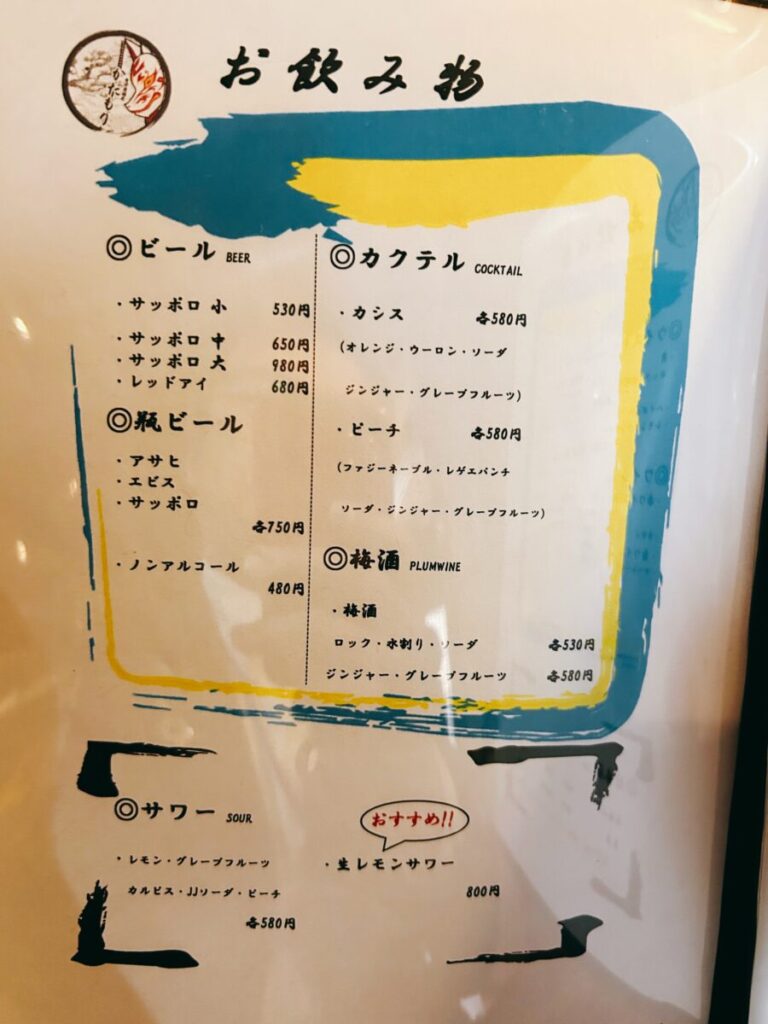 かたもり
お飲み物
◎ビール BEER
・サッポロ 小 530円
・サッポロ 中 650円
・サッポロ 大 980円
・レッドアイ 680円
◎瓶ビール
・アサヒ
・エビス
・サッポロ
各750円
・ノンアルコール
480円
◎カクテル COCKTAIL
・カシス 各580円
(オレンジ・ウーロン・ソーダ
ジンジャー・グレープフルーツ)
・ピーチ 各580円
(ファジーネーブル・レゲエパンチ
ソーダ・ジンジャー・グレープフルーツ)
◎梅酒 PLUMWINE
・梅酒
ロック・水割り・ソーダ 各530円
ジンジャー・グレープフルーツ 各580円
◎サワー SOUR
・レモン・グレープフルーツ
カルピス・JJソーダ・ピーチ
各580円
おすすめ!!
・生レモンサワー
800円